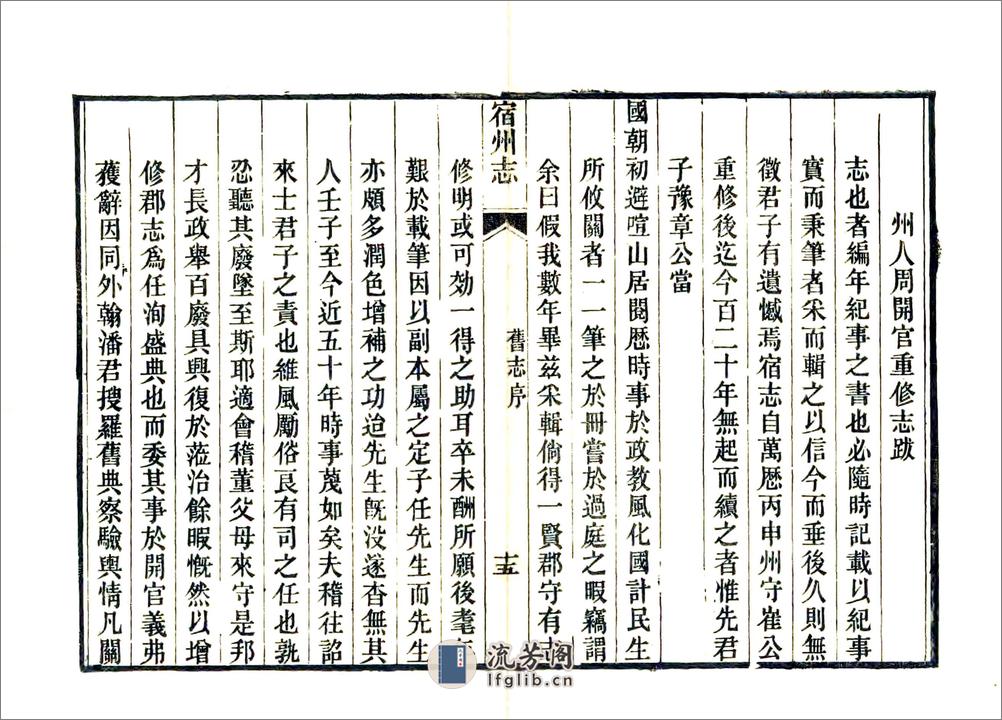 州人周開官重修志跋
志也者編年紀事之書也必隨時記載以紀事
實而秉筆者采而輯之以信今而垂後久則無
徵君子有遺憾焉宿志自萬曆丙申州守崔公
重修後迄今百二十年無起而續之者惟先君
子豫章公當
國朝初避喧山居閱歷時事於政教風化國計民生
所攸關者一一筆之於冊嘗於過庭之暇竊謂
余曰假我數年畢茲采輯倘得一賢郡守有志
宿州志
舊志序
十五
修明或可効一得之助耳卒未酬所願後耄年
艱於載筆因以副本屬之定子任先生而先生
亦頗多潤色增補之功迨先生既沒遂杳無其
人壬子至今近五十年時事茂如矣夫稽往詔
來士君子之責也維風勵俗良有司之任也孰
忍聽其廢墜至斯耶適會稽董父母來守是邦
才長政舉百廢具興復於蒞治餘暇慨然以增
修郡志為任洵盛典也而委其事於開官義弗
獲辭因同外翰潘君搜羅舊典察驗輿情凡關
流芳閣
lfglib.cn